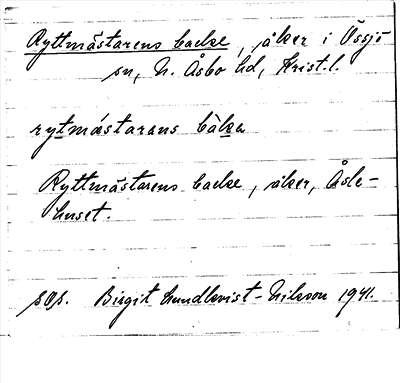 Ryttmästarens backe, åker i Össjö
sn, N. Åsbo hd, Krist. l.
rytmästarans bäka
Ryttmästarens backe, åker, Åsle-
huset.
sOp. Birgit Lundkvist-Nilsson 1941.